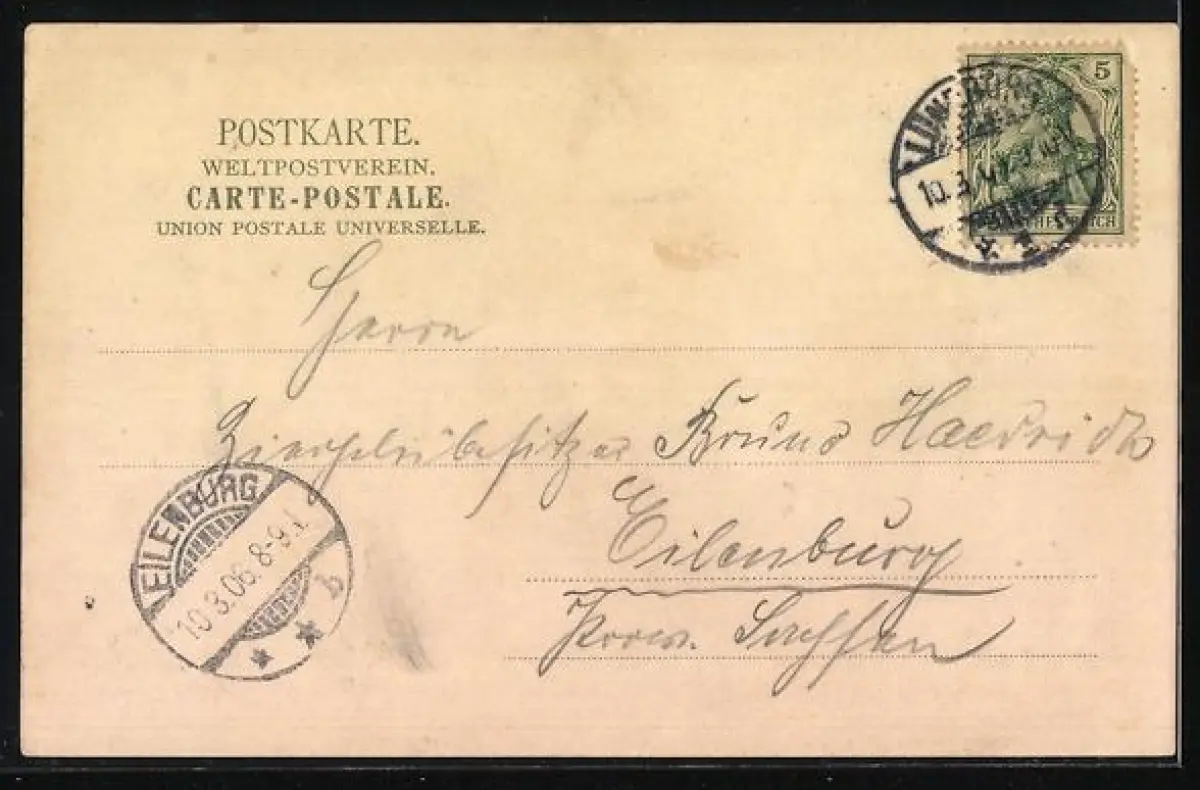 POSTKARTE.
WELTPOSTVEREIN.
CARTE-POSTALE.
UNION POSTALE UNIVERSELLE.
5
LÜNEBURG
10.3.
Herrn
Bruno Haedrich
Eilenburg
Prov. Sachsen
EILENBURG
10.3.06.8-9